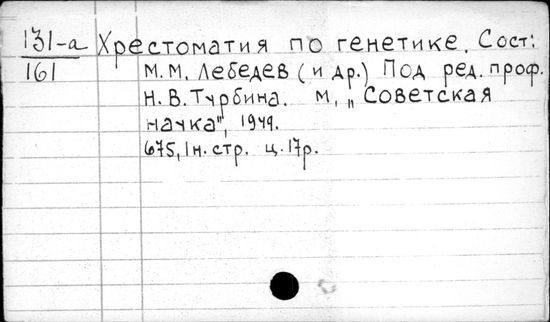 131-а Хрестоматия по генетике. Сост:
161 М.М. Лебедев (и др.) Под ред. проф.
Н.В. Турбина. М, „Советская
наука", 1949.
675, 1н. стр. ц. 17р.